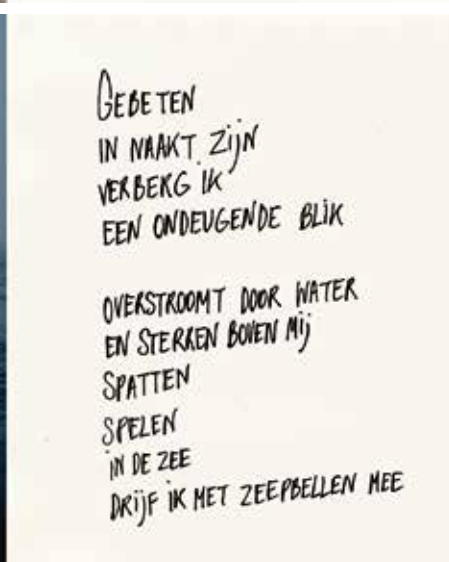 GEBETEN
IN NAAKT ZIJN
VERBERG IK
EEN ONDEUGENDE BLIK
OVERSTROOMT DOOR WATER
EN STERREN BOVEN MIJ
SPATTEN
SPELEN
IN DE ZEE
DRIJF IK MET ZEEPBELLEN MEE